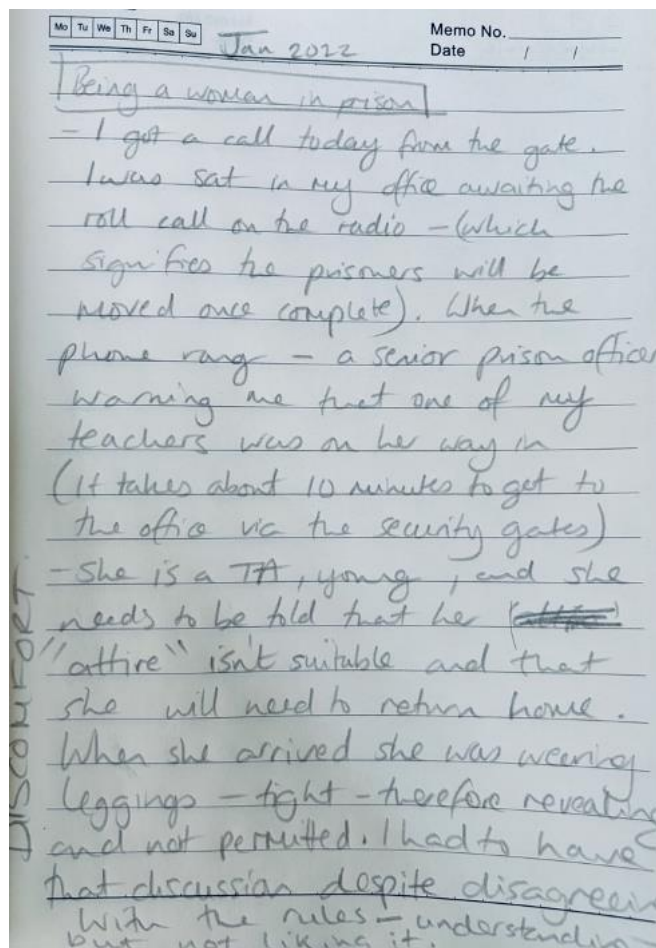 Mo Tu We Th Fr Sa Su
Jan 2022
Memo No.
Date / /
Being a woman in prison
- I got a call today from the gate.
I was sat in my office awaiting the
roll call on the radio - (which
signifies the prisoners will be
moved once complete). When the
phone rang - a senior prison officer
warning me that one of my
teachers was on her way in
(It takes about 10 minutes to get to
the office via the security gates)
- She is a TA, young, and she
needs to be told that her
"attire" isn't suitable and that
she will need to return home.
When she arrived she was wearing
leggings - tight - therefore revealing
and not permitted. I had to have
that discussion despite disagreein
with the rules - understandin
but not liking it.
DISCOMFORT.